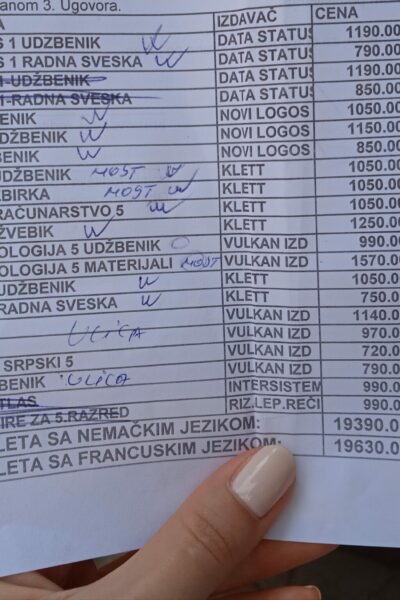 anom 3. Ugovora.
A IZDAVAČ CENA
S 1 UDZBENIK W DATA STATUS 1190.0
S 1 RADNA SVESKA W DATA STATUS 790.0
1 UDŽBENIK DATA STATUS 1190.0
1 RADNA SVESKA DATA STATUS 850.0
ENIK W NOVI LOGOS 1050.0
DŽBENIK W NOVI LOGOS 1150.0
BENIK W NOVI LOGOS 850.0
UDŽBENIK MOST W KLETT 1050.0
ZBIRKA MOST W KLETT 1050.0
RAČUNARSTVO 5 W KLETT 1050.0
ŽVEBIK W KLETT 1250.0
OLOGIJA 5 UDŽBENIK O VULKAN IZD 990.0
OLOGIJA 5 MATERIJALI MOST VULKAN IZD 1570.0
UDŽBENIK W KLETT 1050.0
RADNA SVESKA W KLETT 750.0
ULICA VULKAN IZD 1140.0
VULKAN IZD 970.0
SRPSKI 5 VULKAN IZD 720.0
BENIK ULICA VULKAN IZD 790.0
TLAS INTERSISTEM 990.0
IRE ZA 5.RAZRED RIZ.LEP.REČI 990.0
LETA SA NEMAČKIM JEZIKOM: 19390.0
LETA SA FRANCUSKIM JEZIKOM: 19630.0